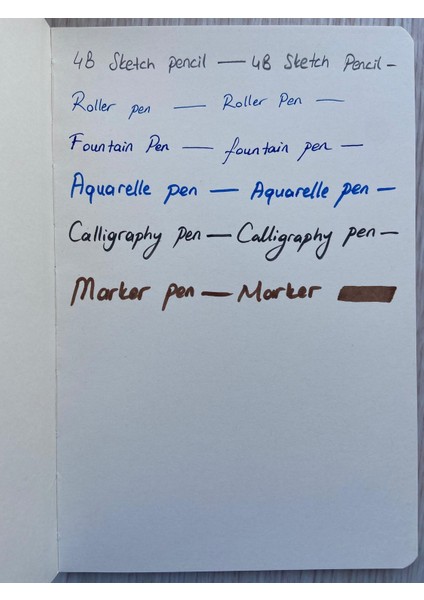 4B Sketch pencil — 4B Sketch Pencil –
Roller pen — Roller Pen —
Fountain Pen — fountain pen —
Aquarelle pen — Aquarelle pen —
Calligraphy Pen — Calligraphy pen –
Marker pen — Marker